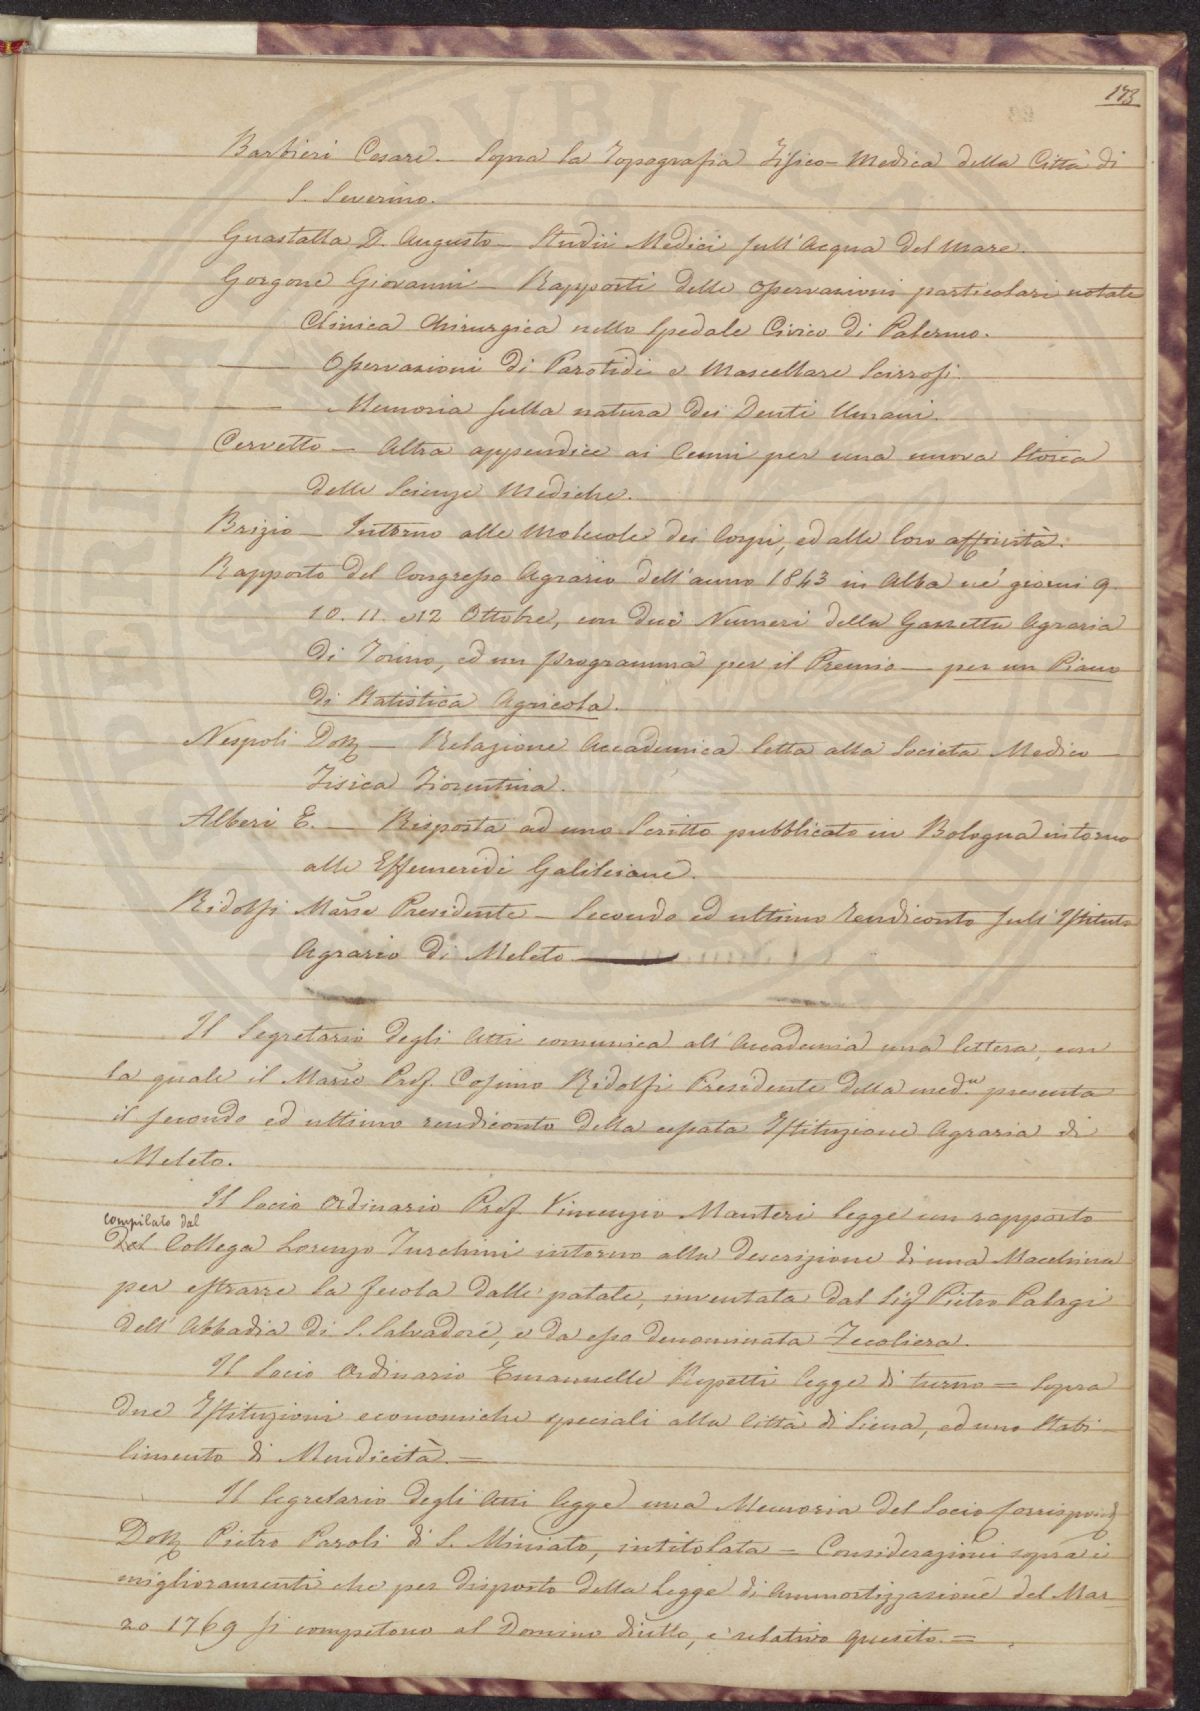 173
Barbieri Cesare. – Sopra la Topografia Fisico-Medica della Città di
S. Severino.
Guastalla D. Augusto – Studii Medici sull'Acqua del Mare.
Gorgone Giovanni – Rapporti delle Osservazioni particolari notate
Clinica Chirurgica nello Spedale Civico di Palermo.
—— Osservazioni di Parotidi e Mascellare Scirrosi.
—— Memoria sulla natura dei Denti Umani.
Cervetto – Altra appendice ai Cenni per una nuova Storia
delle Scienze Mediche.
Brizio – Intorno alle Molecole dei Corpi, ed alle loro affinità.
Rapporto del Congresso Agrario dell'anno 1843 in Alba ne' giorni 9.
10. 11. e 12 Ottobre, con due Numeri della Gazzetta Agraria
di Torino, ed un programma per il Premio – per un Piano
di Statistica Agricola.
Nespoli Dott. – Relazione Accademica letta alla Società Medico –
Fisica Fiorentina.
Alberi E. – Risposta ad uno Scritto pubblicato in Bologna intorno
alle Effemeridi Galileiane.
Ridolfi March.e Presidente – Secondo ed ultimo rendiconto sull'Istituto
Agrario di Meleto ——
Il Segretario degli Atti comunica all'Accademia una lettera, con
la quale il March.e Prof. Cosimo Ridolfi Presidente della med.a presenta
il secondo ed ultimo rendiconto della cessata Istituzione Agraria di
Meleto.
Il Socio Ordinario Prof. Vincenzio Manteri legge un rapporto
compilato dal
Del Collega Lorenzo Turchini intorno alla descrizione di una Macchina
per estrarre la fecola dalle patate, inventata dal Sig. Pietro Palagi
dell'Abbadia di S. Salvadore, e da esso denominata Fecoliera.
Il Socio Ordinario Emanuelle Repetti legge di turno = Sopra
due Istituzioni economiche speciali alla Città di Siena, ed uno Stabi–
limento di Mendicità. =
Il Segretario degli Atti legge una Memoria del Socio Corrispond.
Dott. Pietro Paroli di S. Miniato, intitolata = Considerazioni sopra i
miglioramenti che per disposto della Legge di Ammortizzazione del Mar–
zo 1769 si competono al Domino diretto, e relativo quesito. =